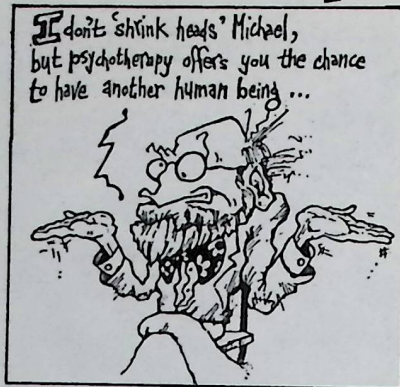 I don't 'shrink heads' Michael,
but psychotherapy offers you the chance
to have another human being ...